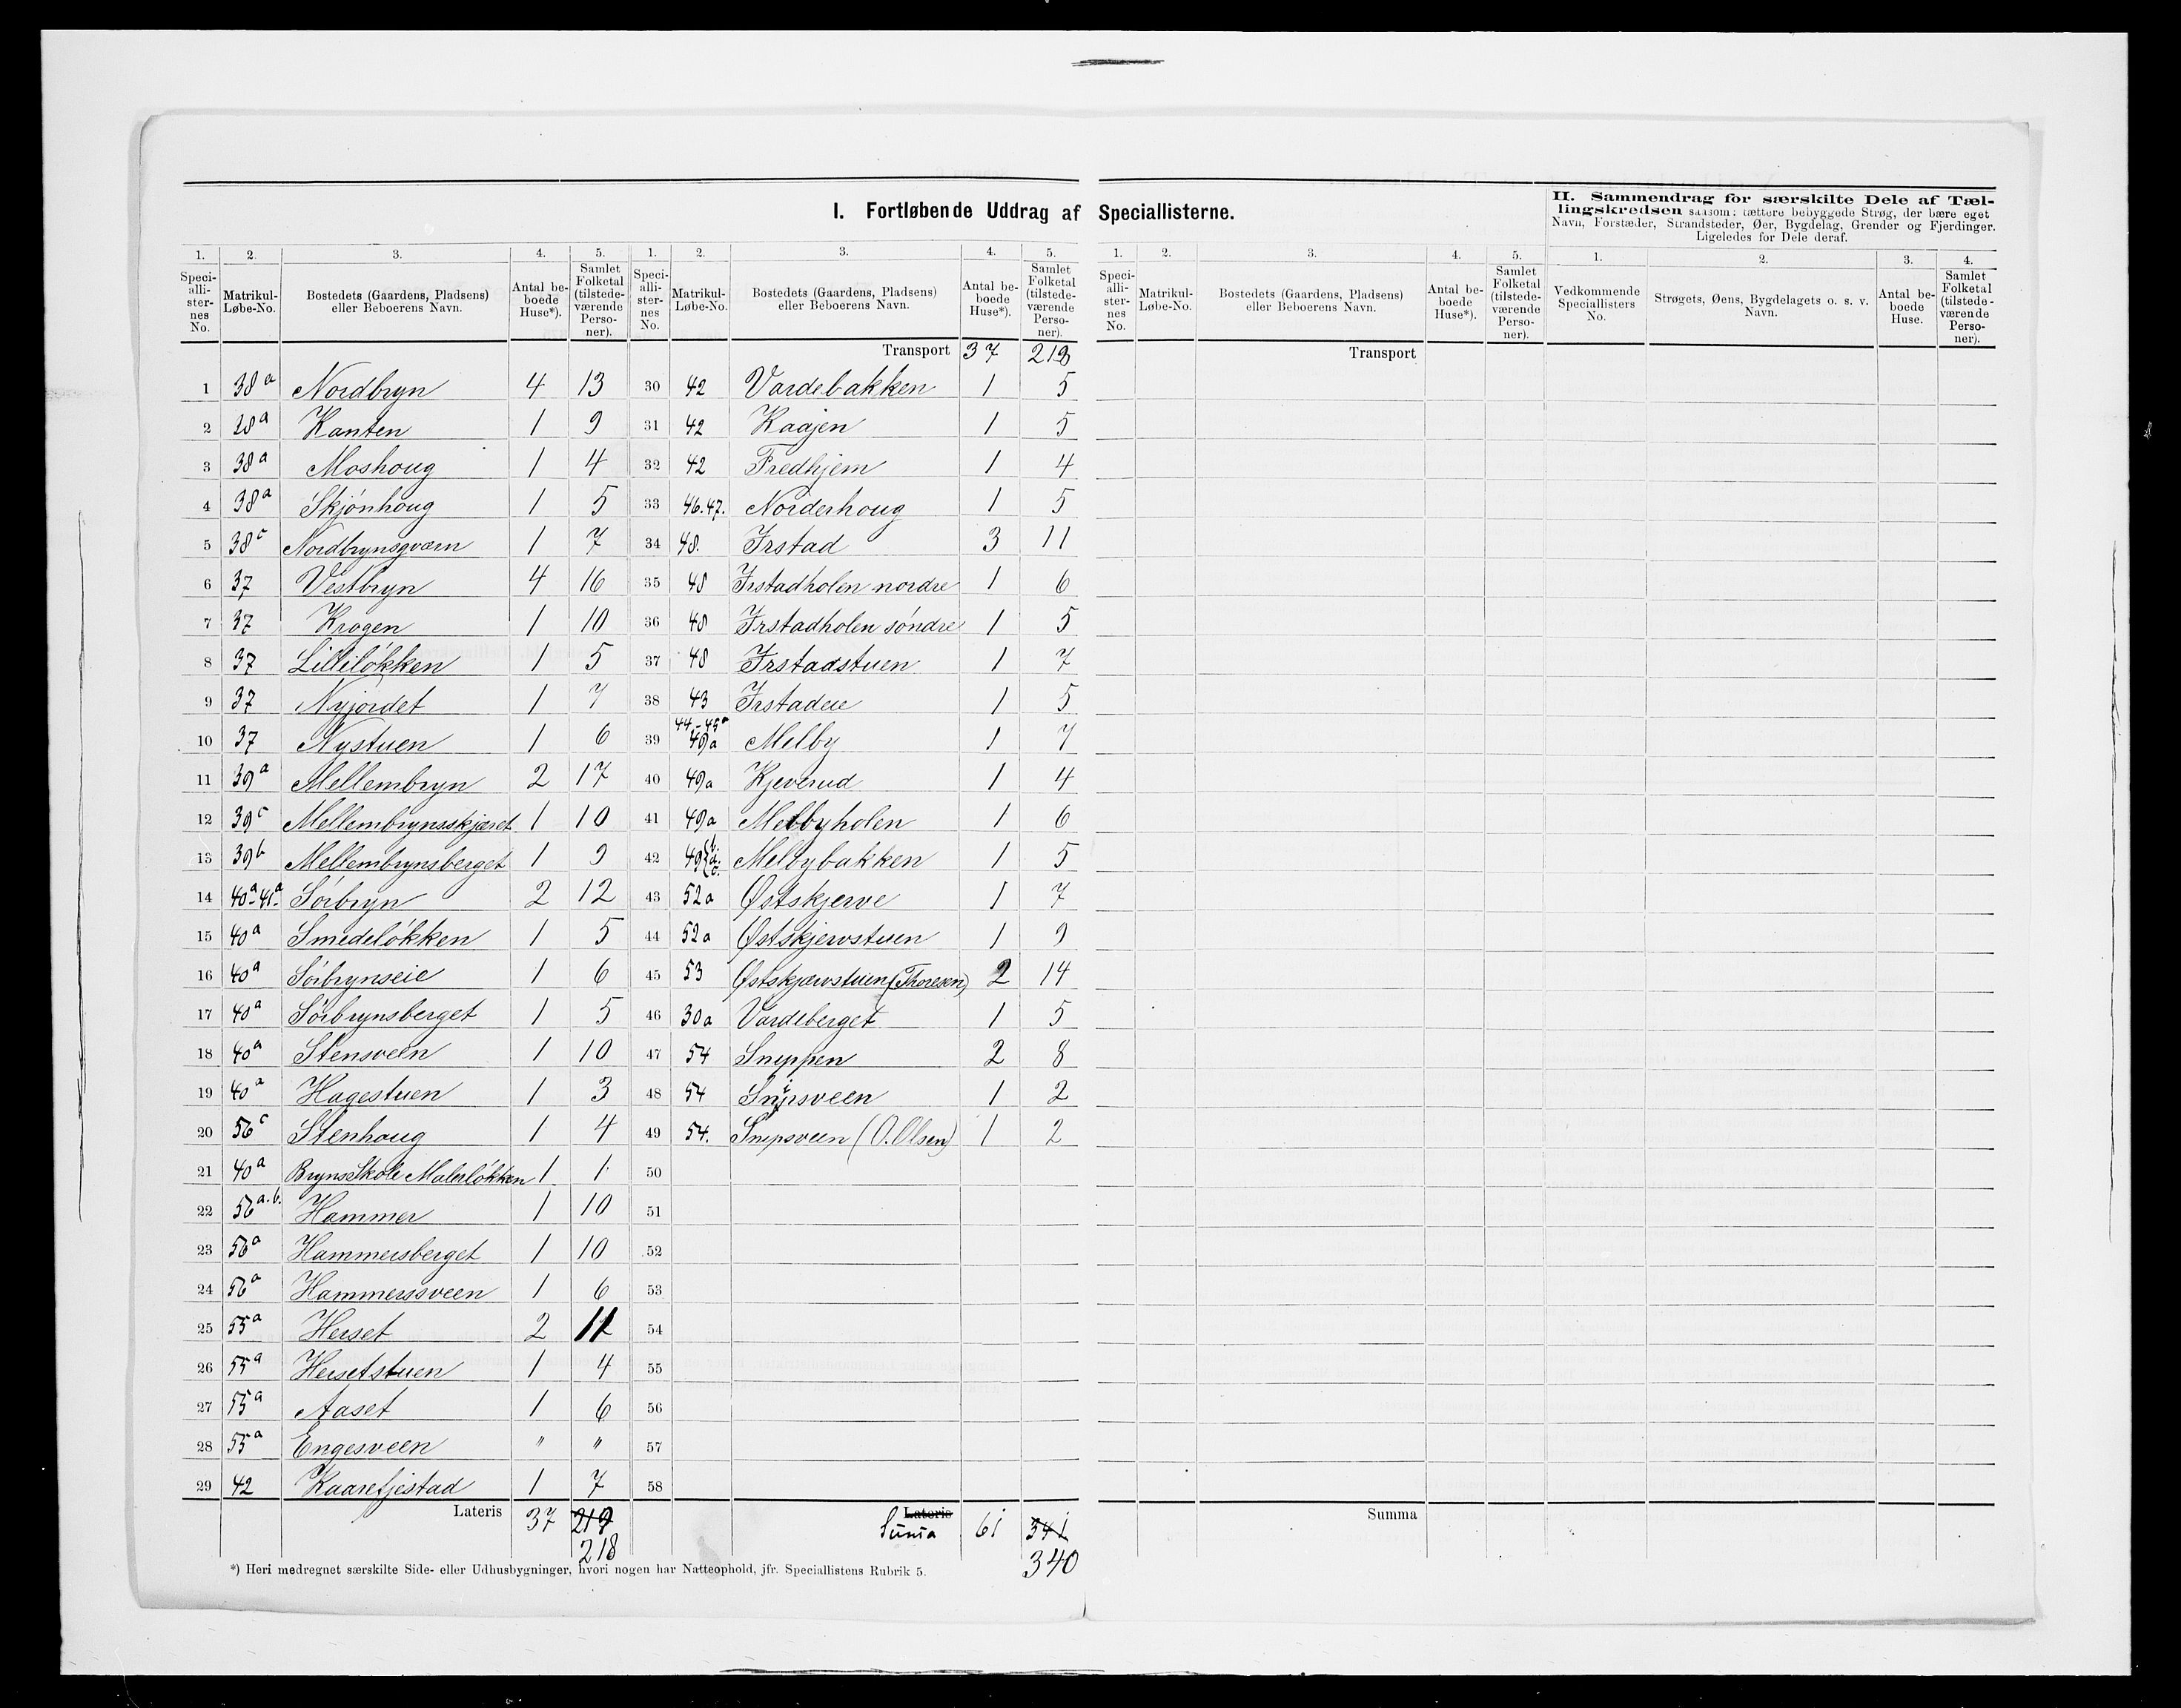 I. Fortløbende Uddrag af Speciallisterne.
II. Sammendrag for særskilte Dele af Tællingskredsen saasom: tættere bebyggede Strøg, der bære eget
Navn, Forstæder, Strandsteder, Øer, Bygdelag, Grender og Fjerdinger.
Ligeledes for Dele deraf.
1. 2. 3. 4. 5. 1. 2. 3. 4. 5. 1. 2. 3. 4. 5. 1. 2. 3. 4.
Speciallisternes No. Matrikul-Løbe-No. Bostedets (Gaardens, Pladsens) eller Beboerens Navn. Antal beboede Huse*). Samlet Folketal (tilstedeværende Personer).
Speciallisternes No. Matrikul-Løbe-No. Bostedets (Gaardens, Pladsens) eller Beboerens Navn. Antal beboede Huse*). Samlet Folketal (tilstedeværende Personer).
Speciallisternes No. Matrikul-Løbe-No. Bostedets (Gaardens, Pladsens) eller Beboerens Navn. Antal beboede Huse*). Samlet Folketal (tilstedeværende Personer).
Vedkommende Speciallisters No. Strøgets, Øens, Bygdelagets o. s. v. Navn. Antal beboede Huse. Samlet Folketal (tilstedeværende Personer).
1 38a Nordbryn 4 13
2 38a Kanten 1 9
3 38a Moshoug 1 4
4 38a Skjönhoug 1 5
5 38c Nordbrynsgværn 1 7
6 37 Vestbryn 4 16
7 37 Krogen 1 10
8 37 Lillelökken 1 5
9 37 Nyjordet 1 7
10 37 Nystuen 1 6
11 39a Mellembryn 2 17
12 39c Mellembrynsskjæret 1 10
13 39b Mellembrynsberget 1 9
14 40a-41a Sörbryn 2 12
15 40a Smedelökken 1 5
16 40a Sörbrynseie 1 6
17 40a Sörbrynsberget 1 5
18 40a Stensveen 1 10
19 40a Hagestuen 1 3
20 56c Stenhoug 1 4
21 40a Bryns Skole Malerlökken 1 1
22 56a.b. Hammer 1 10
23 56a Hammersberget 1 10
24 56a Hammerssveen 1 6
25 55a Herset 2 11
26 55a Hersetstuen 1 4
27 55a Aaset 1 6
28 55a Engesveen " "
29 42 Kaarefjestad 1 7
Lateris 37 219
218
Transport 37 218
30 42 Vardebakken 1 5
31 42 Kaajen 1 5
32 42 Fredhjem 1 4
33 46.47. Norderhoug 1 5
34 48. Irstad 3 11
35 48 Irstadholen nordre 1 6
36 48 Irstadholen söndre 1 5
37 48 Irstadstuen 1 7
38 43 Irstadeie 1 5
39 44-45a 49a Melby 1 7
40 49a Kjeverud 1 4
41 49a Melbyholen 1 6
42 49 b. d. c. Melbybakken 1 5
43 52a Østskjerve 1 7
44 52a Østskjervstuen 1 9
45 53 Østskjærvstuen (Thoresen) 2 14
46 30a Vardeberget 1 5
47 54 Snippen 2 8
48 54 Snipsveen 1 2
49 54. Snipsveen (O. Olsen) 1 2
50
51
52
53
54
55
56
57
58
Lateris
Suma 61 341
340
Transport
Summa
*) Heri medregnet særskilte Side- eller Udhusbygninger, hvori nogen har Natteophold, jfr. Speciallistens Rubrik 5.